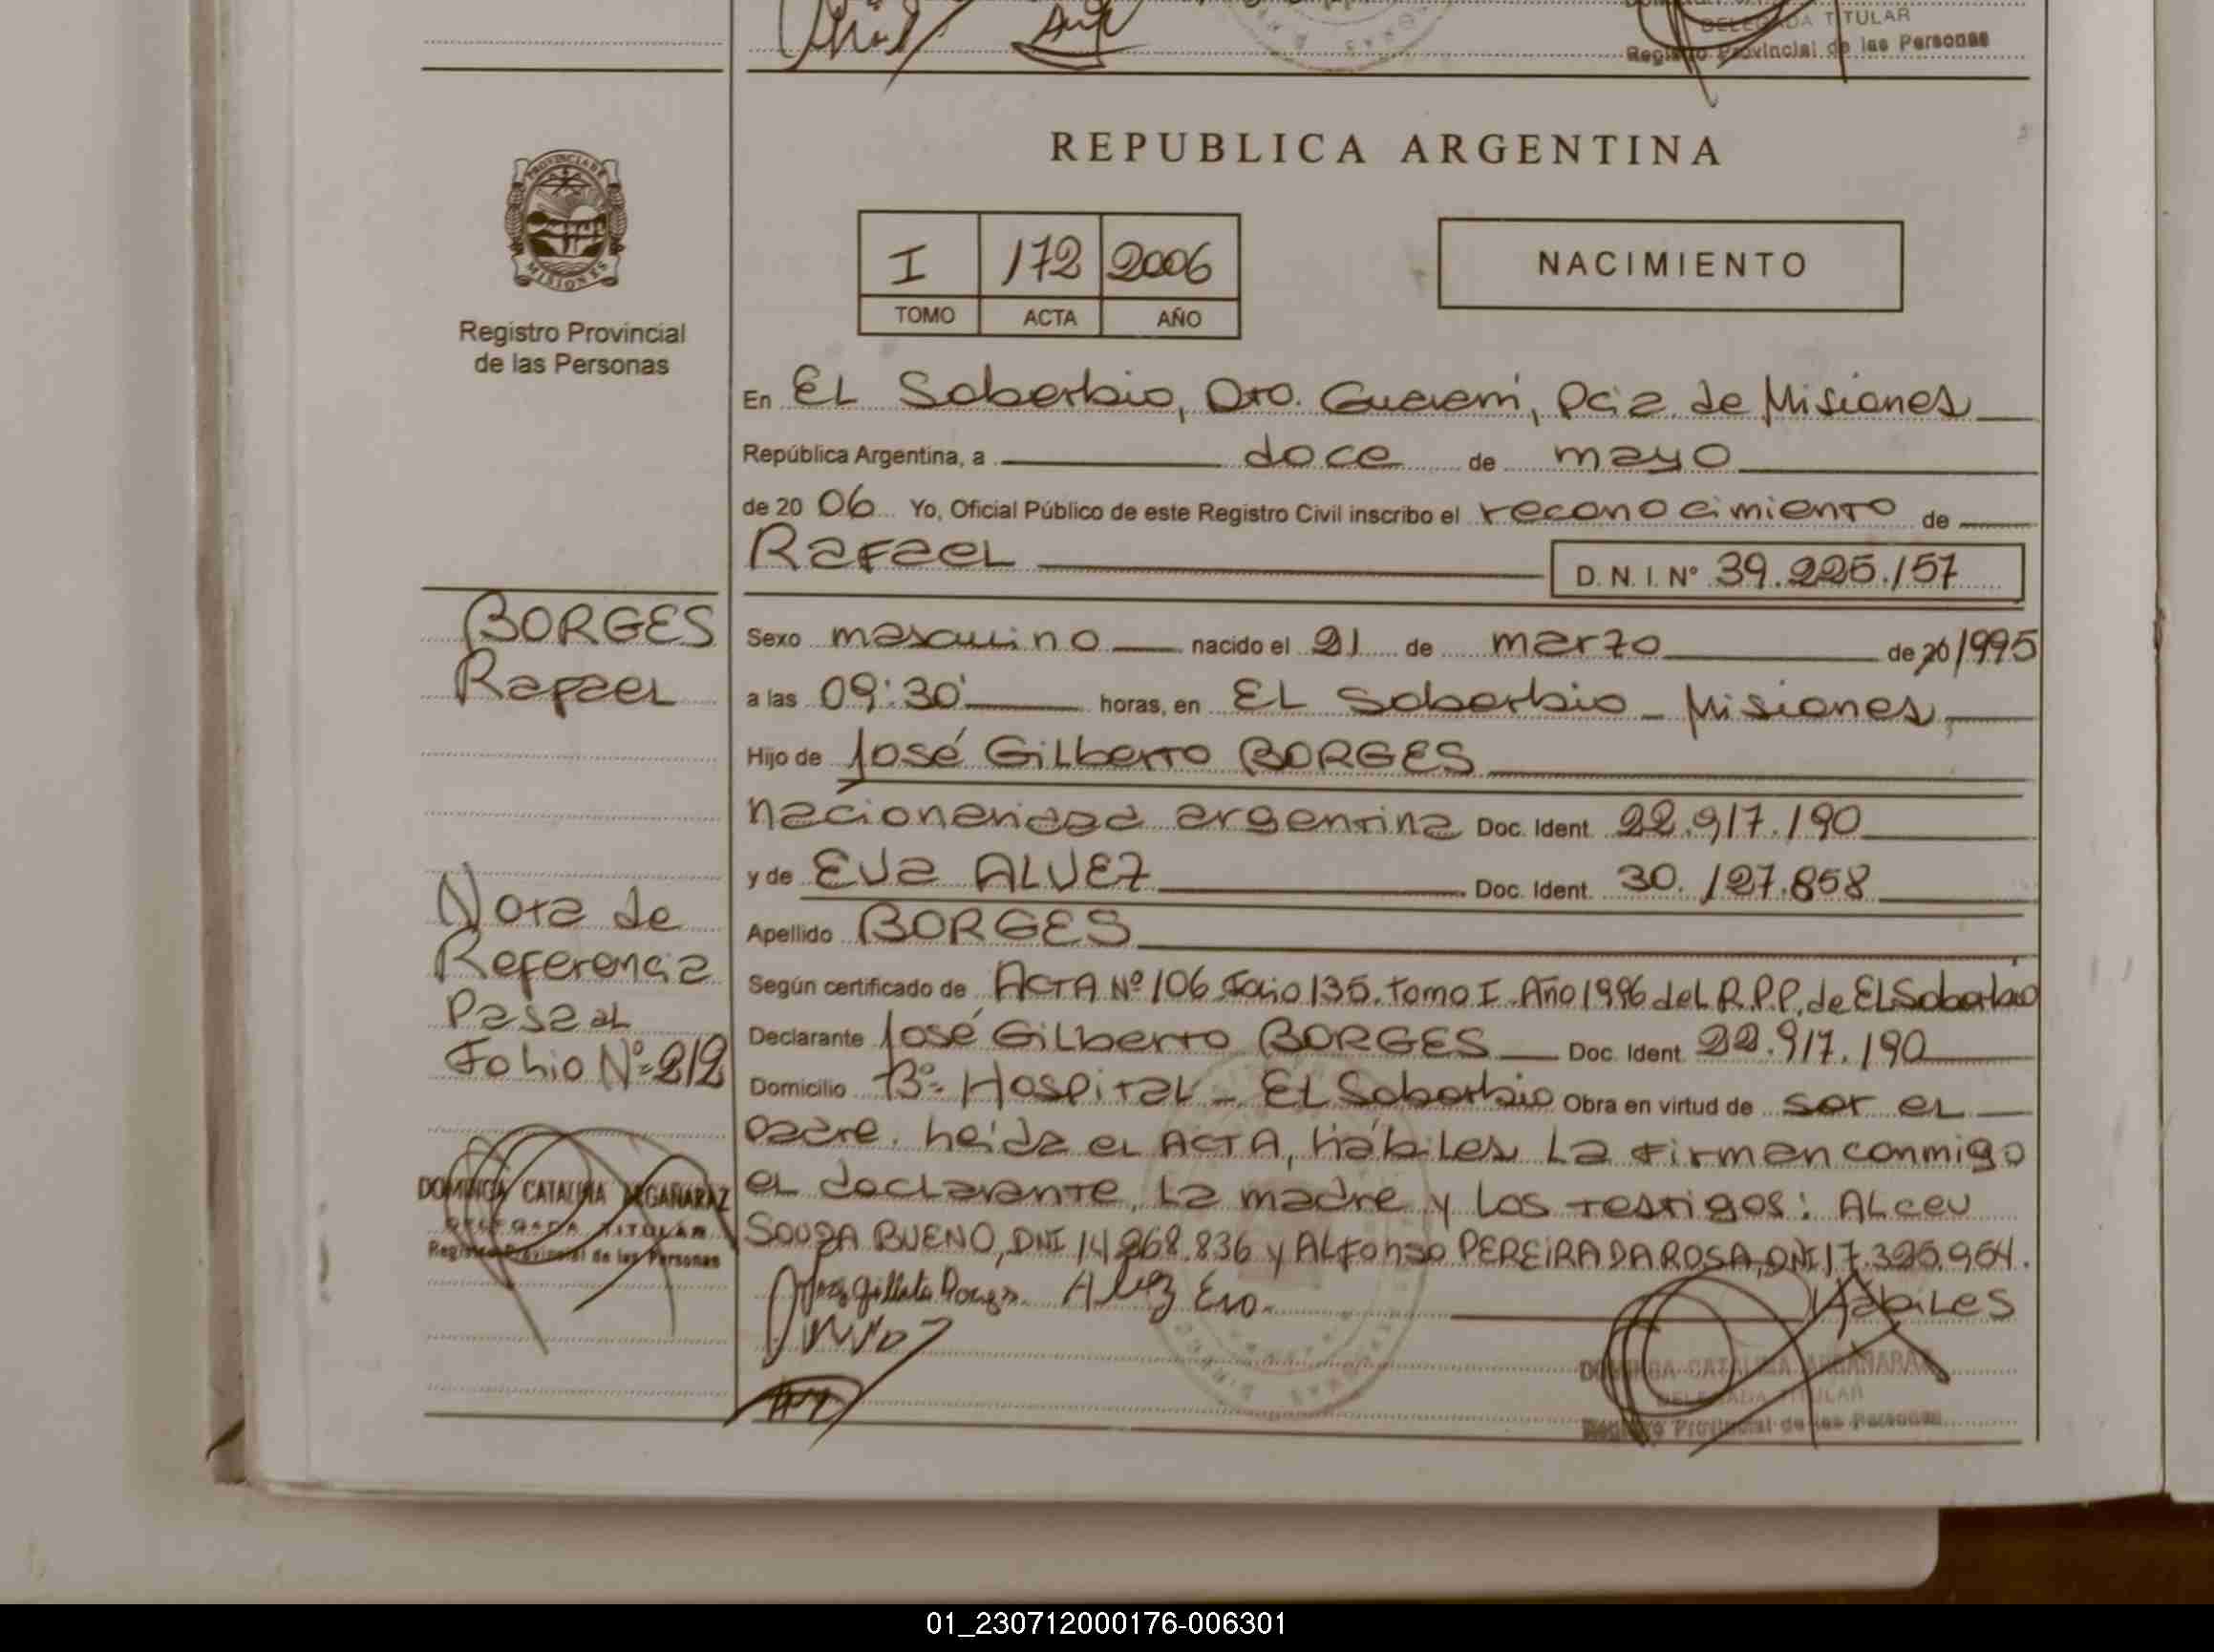 DELEGADA TITULAR
Registro Provincial de las Personas
REPUBLICA ARGENTINA
PROVINCIA DE
MISIONES
Registro Provincial
de las Personas
I 172 2006
TOMO ACTA AÑO
NACIMIENTO
En EL Soberbio, Dto. Guaraní, Pcia de Misiones
República Argentina, a doce de mayo
de 20 06 Yo, Oficial Público de este Registro Civil inscribo el reconocimiento de
Rafael D. N. I. Nº 39.225.157
BORGES
Rafael
Sexo masculino nacido el 21 de marzo de 20 1995
a las 09:30' horas, en EL Soberbio - Misiones
Hijo de José Gilberto BORGES
nacionalidad argentina Doc. Ident. 22.917.190
y de Eva ALVEZ Doc. Ident. 30.127.858
Apellido BORGES
Según certificado de ACTA Nº 106 Folio 135. Tomo I Año 1996 del R.P.P. de EL Soberbio
Declarante José Gilberto BORGES Doc. Ident. 22.917.190
Domicilio Bº Hospital - EL Soberbio Obra en virtud de ser el
padre. heida el ACTA, hábiles la firman conmigo
el declarante, la madre y los testigos: ALceu
SOUZA BUENO, DNI 14.268.836 y ALfonso PEREIRA DA ROSA, DNI 17.325.954.
Hábiles
Nota de
Referencia
Pasa al
Folio Nº 212
DOMINGA CATALINA ARGAÑARAZ
DELEGADA TITULAR
Registro Provincial de las Personas
Alvez Eva
DOMINGA CATALINA ARGAÑARAZ
DELEGADA TITULAR
Registro Provincial de las Personas
01_230712000176-006301